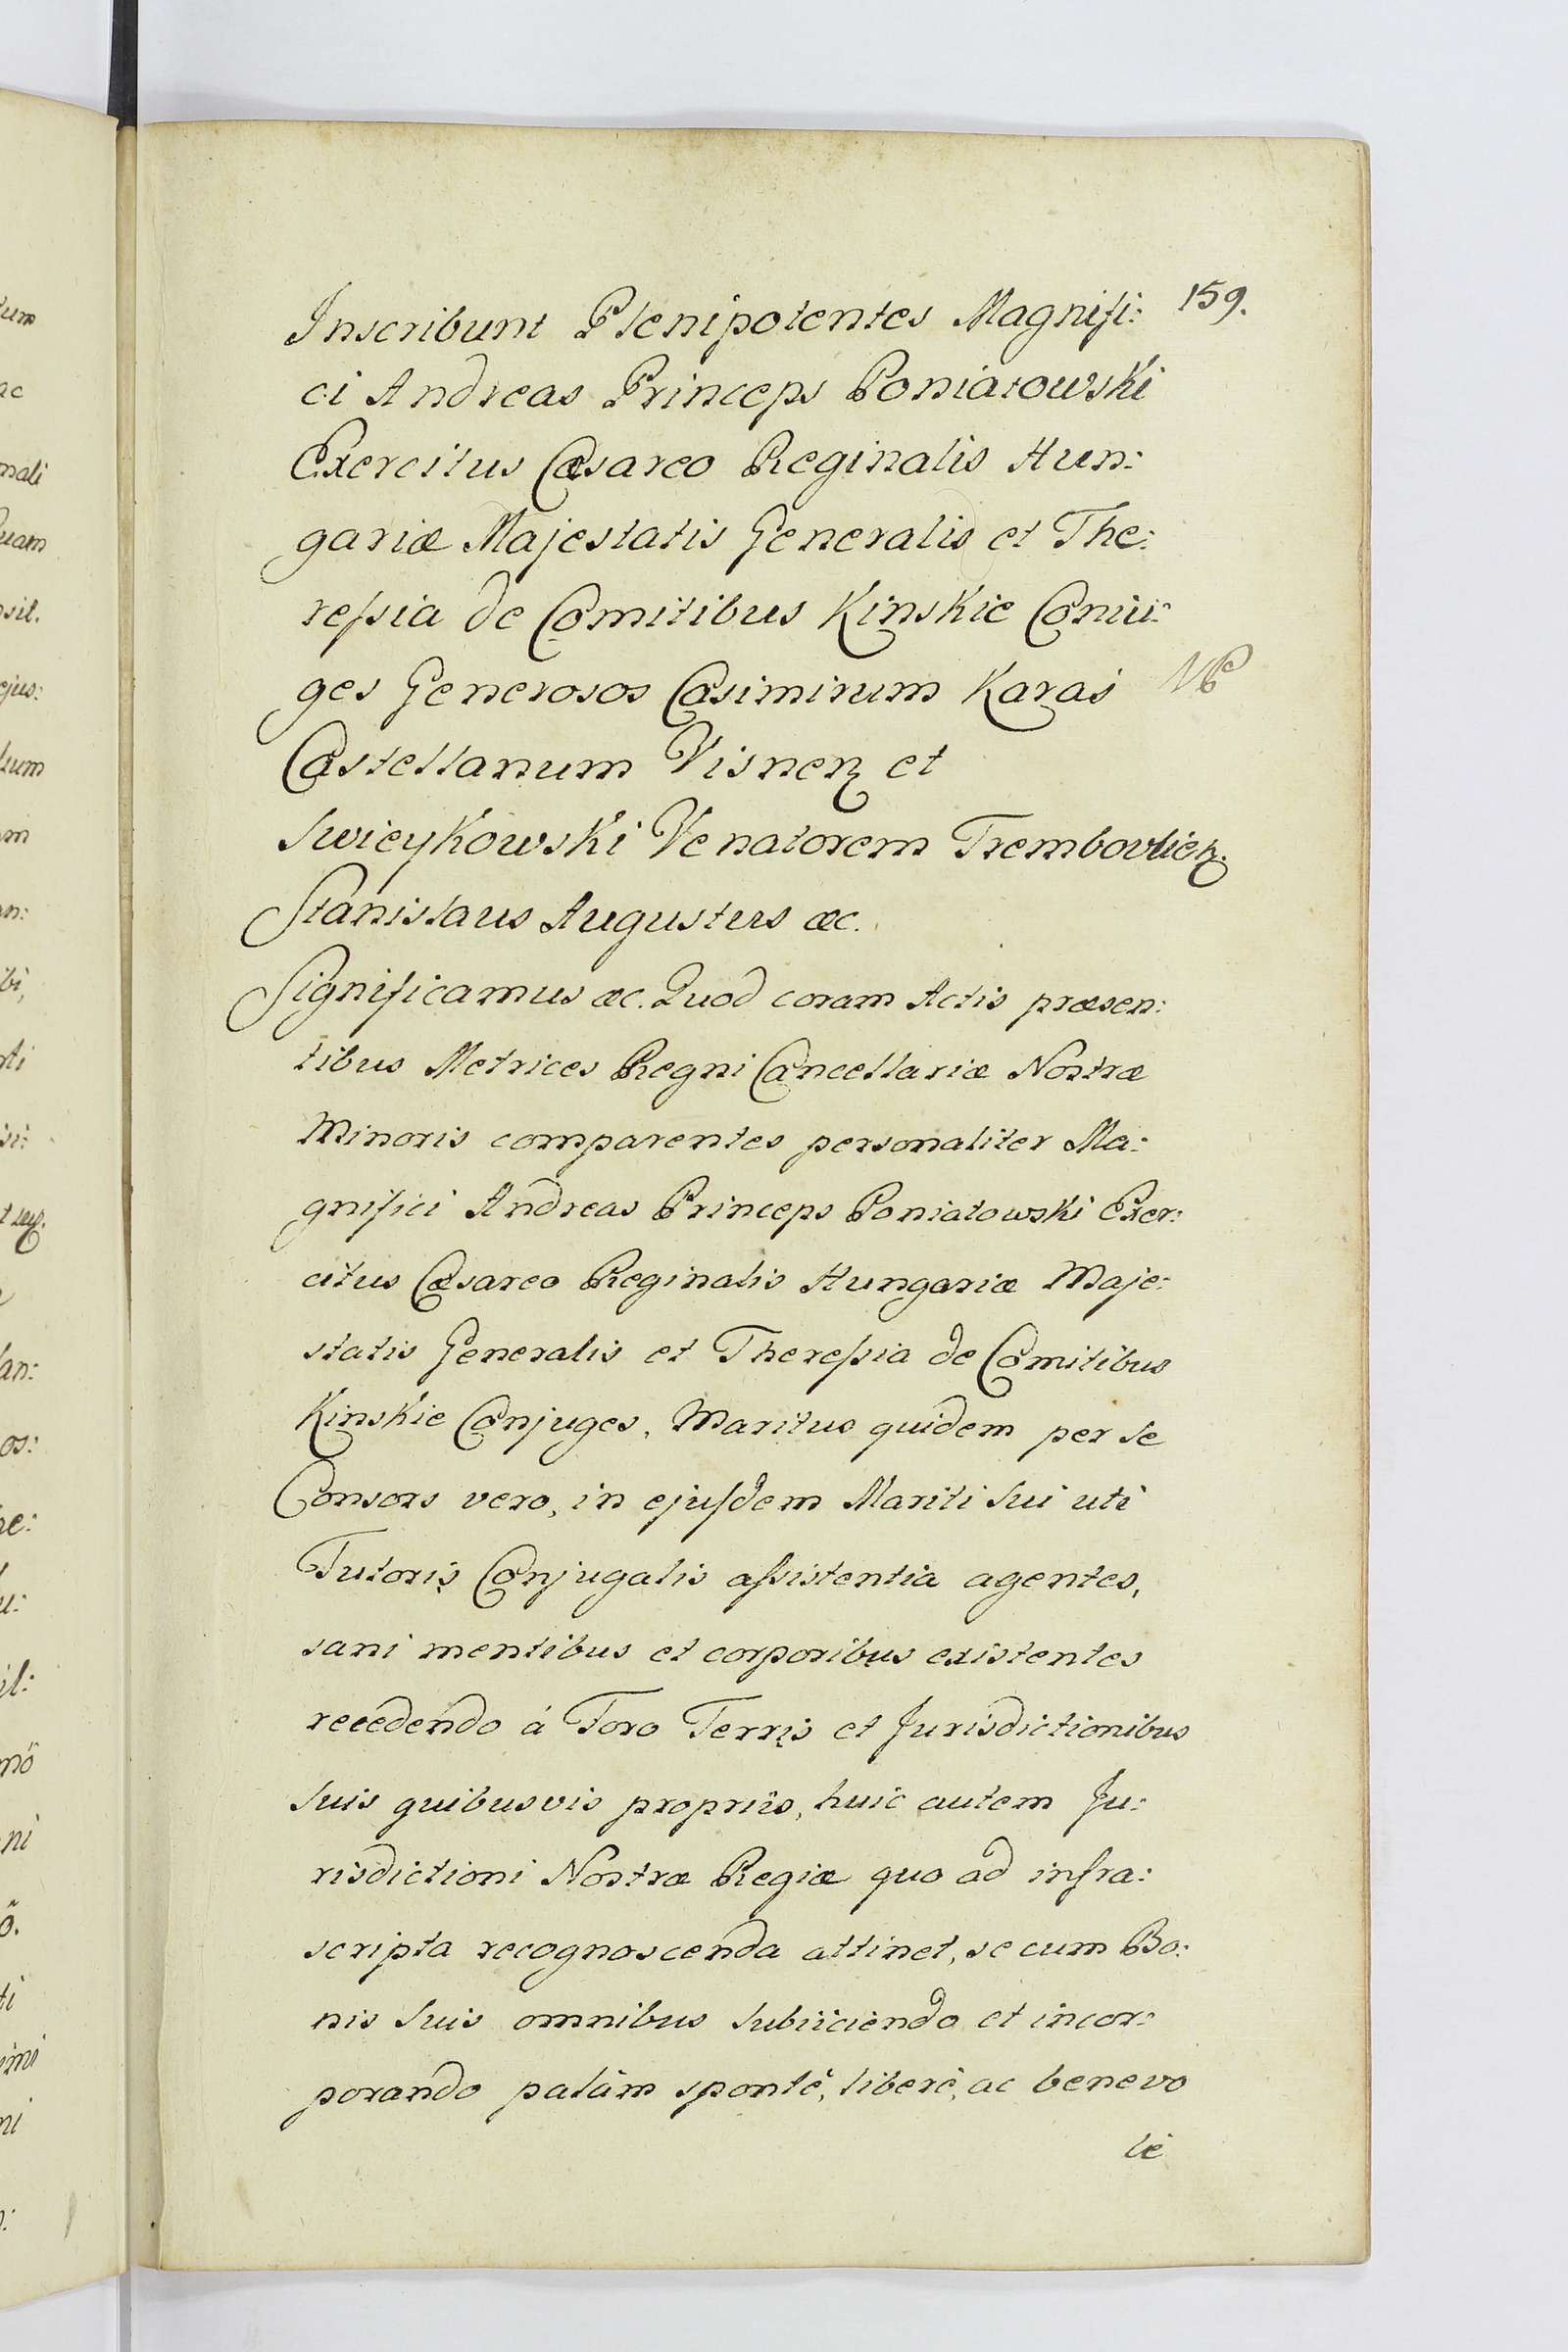 159.
Inscribunt Plenipotentes Magnifi:
ci Andreas Princeps Poniatowski
Exercitus Cæsareo Reginalis Hun:
gariæ Majestatis Generalis et The:
reſsia de Comitibus Kinskie Coniu:
ges Generosos Casimirum Karaś
Castellanum Visnen et
Swieykowski Venatorem Trembovlien.
Stanislaus Augustus &c.
Significamus &c. Quod coram Actis præsen:
tibus Metrices Regni Cancellariæ Nostræ
Minoris comparentes personaliter Ma:
gnifici Andreas Princeps Poniatowski Exer:
citus Cæsareo Reginalis Hungariæ Maje:
statis Generalis et Thereſsia de Comitibus
Kinskie Conjuges, Maritus quidem per se
Consors vero, in ejuſdem Mariti sui uti
Tutoris Conjugalis aſsistentia agentes,
sani mentibus et corporibus existentes
recedendo à Foro Terris et Jurisdictionibus
suis quibusvis propriis, huic autem Ju:
risdictioni Nostræ Regiæ quo ad infra:
scripta recognoscenda attinet, se cum Bo:
nis suis omnibus subiiciendo et incor:
porando palàm spontè, liberè, ac benevo
lè